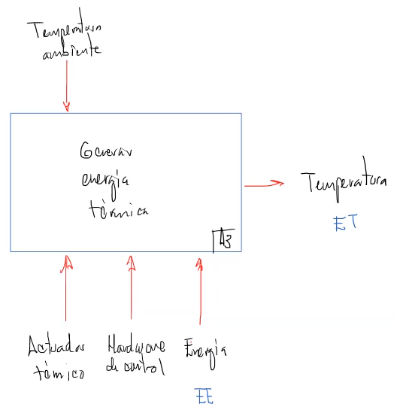 Temperatura
ambiente
Generar
energía
térmica
A3
Temperatura
ET
Actuador
térmico
Hardware
de control
Energía
EE